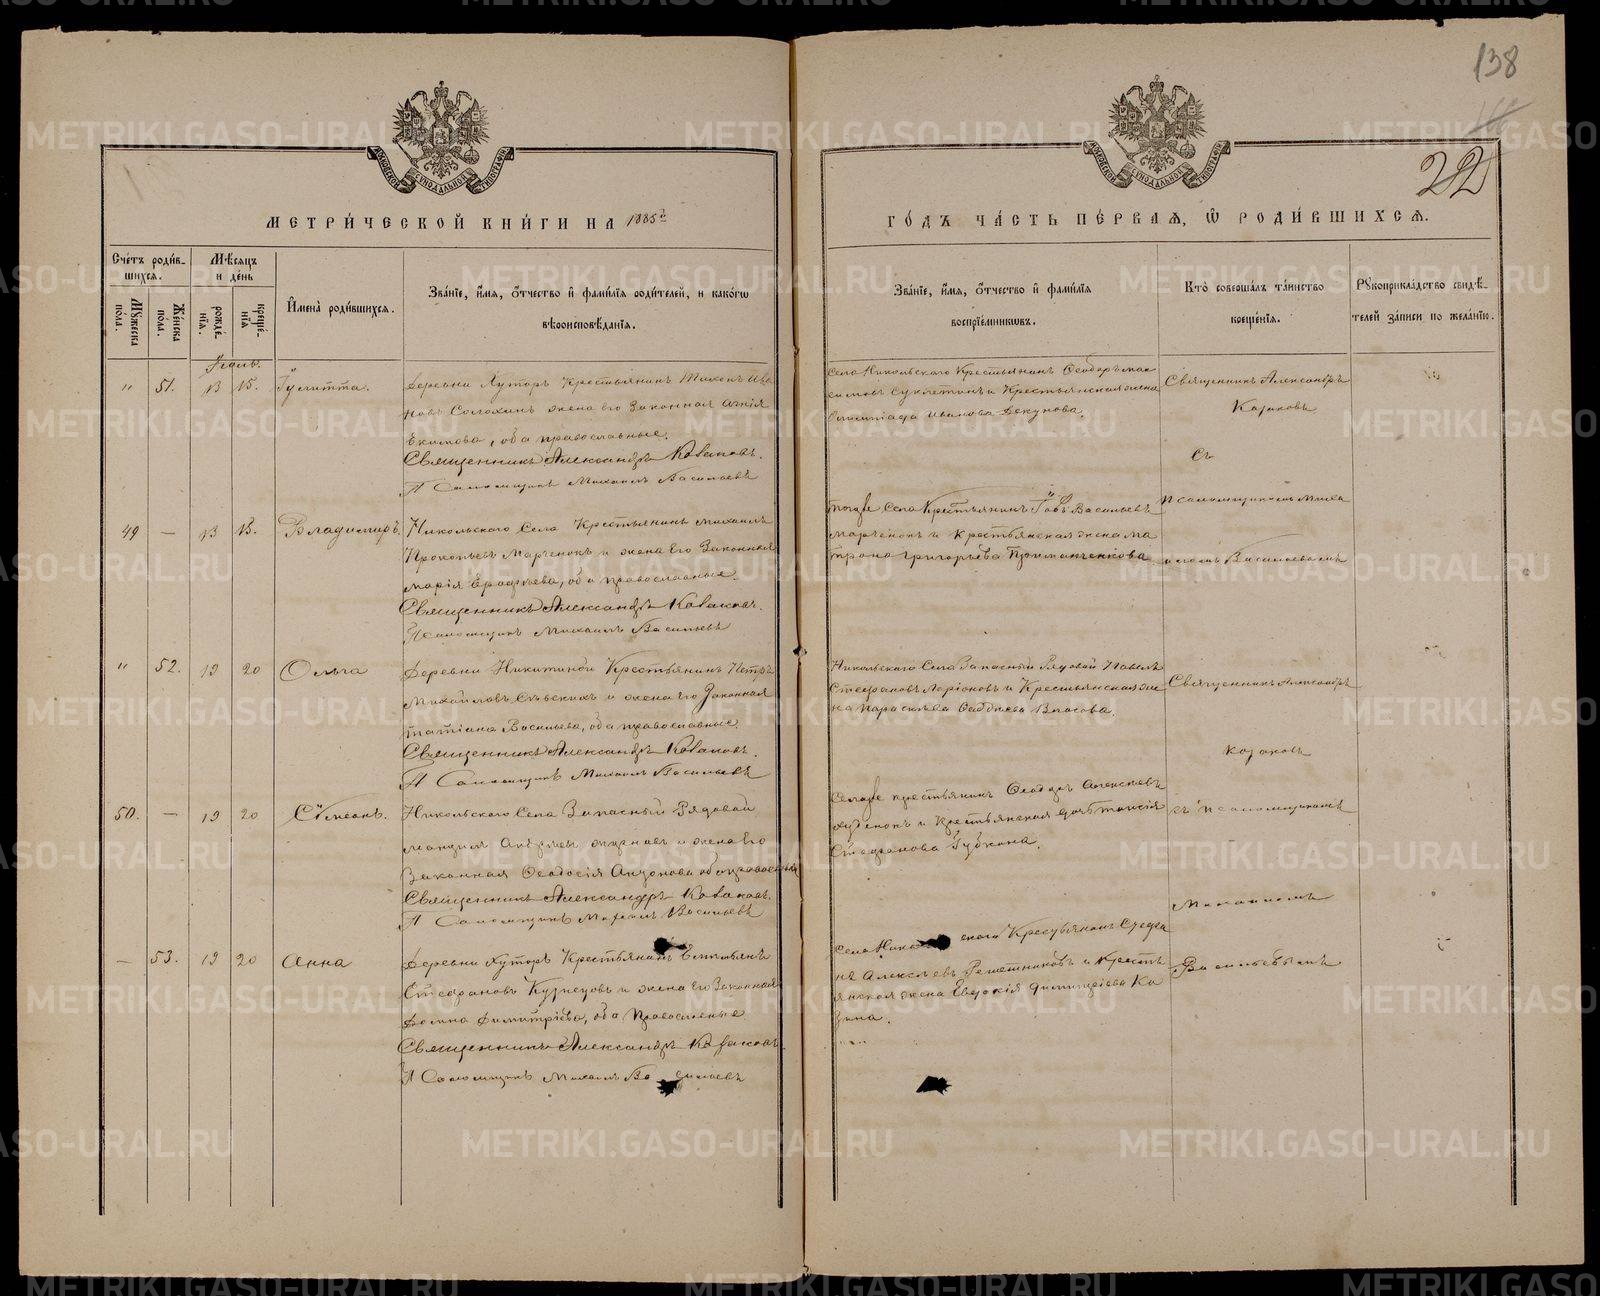 138
22
МОСКОВСКОЙ СѴНОДАЛЬНОЙ ТИПОГРАФІИ
МОСКОВСКОЙ СѴНОДАЛЬНОЙ ТИПОГРАФІИ
МЕТРИ́ЧЕСКОЙ КНИ́ГИ НА 1885й
ГО́ДЪ ЧА́СТЬ ПЕ́РВАѦ, Ѿ РОДИ́ВШИХСѦ.
Сче́тъ роди́в-
шихсѧ.
Мѣ́сѧцъ
и де́нь
Мꙋ́жеска по́ла.
Же́нска по́ла.
рожде́нїѧ.
креще́нїѧ
И҆мена̀ роди́вшихсѧ.
Зва́нїе, и҆́мѧ, ѻ҆́тчество и҆ фами́лїѧ роди́телей, и како́гѡ
вѣроисповѣ́данїѧ.
Зва́нїе, и҆́мѧ, ѻ҆́тчество и҆ фами́лїѧ
воспрїе́мникѡвъ.
Кто̀ соверша́лъ та́инство
креще́нїѧ.
Рꙋкоприкла́дство свидѣ́-
телей за́писи по жела́нїю.
Іюль.
" 51. 13 15. Іулитта.
Деревни Хуторъ Крестьянинъ Тихонъ Ива
новъ Солохинъ жена его Законная Агнія
Екимова, оба православные.
Священникъ Александръ Казаковъ.
Псаломщикъ Михаилъ Васильевъ
Села Никольскаго Крестьянинъ Ѳеодоръ Мак
симовъ и Крестьянская жена
Ивановна
Священникъ Александръ
Казаковъ
съ
49 — 13 15. Владимиръ.
Никольскаго Села Крестьянинъ Михаилъ
Прокопьевъ Марченокъ и жена его Законная
Марія оба православные.
Священникъ Александръ Казаковъ.
Псаломщикъ Михаилъ Васильевъ
тогоже Села Крестьянинъ Васильевъ
Марченокъ и Крестьянская жена Ма
трона Григорьева
псаломщикомъ Миха
иломъ Васильевымъ
" 52. 19 20 Ольга
Деревни Никитиной Крестьянинъ Петръ
Михайловъ и жена его Законная
Татіана Васильева, оба православные.
Священникъ Александръ Казаковъ.
Псаломщикъ Михаилъ Васильевъ
Никольскаго Села Запасный Рядовой Павелъ
Стефановъ Ларіоновъ и Крестьянская же
на Параскева Власова.
Священникъ Александръ
Казаковъ
50. — 19 20 Симеонъ.
Никольскаго Села Запасный Рядовой
Максимъ Андреевъ и жена его
Законная Ѳеодосія оба православные
Священникъ Александръ Казаковъ.
Псаломщикъ Михаилъ Васильевъ
Селаже крестьянинъ Ѳеодоръ Алексеевъ
и Крестьянская дочь Таисія
Стефанова Губкина.
съ псаломщикомъ
Михаиломъ
— 53. 19 20 Анна
Деревни Хуторъ Крестьянинъ
Стефановъ Кузнецовъ и жена его Законная
Домна Димитріева, оба Православные
Священникъ Александръ Казаковъ
Псаломщикъ Михаилъ Васильевъ
Села Никольскаго Крестьянинъ Стефа
нъ Алексеевъ Решетниковъ и Крестья
янская жена Евдокія Димитріева Ка
зина.
Васильевымъ
METRIKI.GASO-URAL.RU